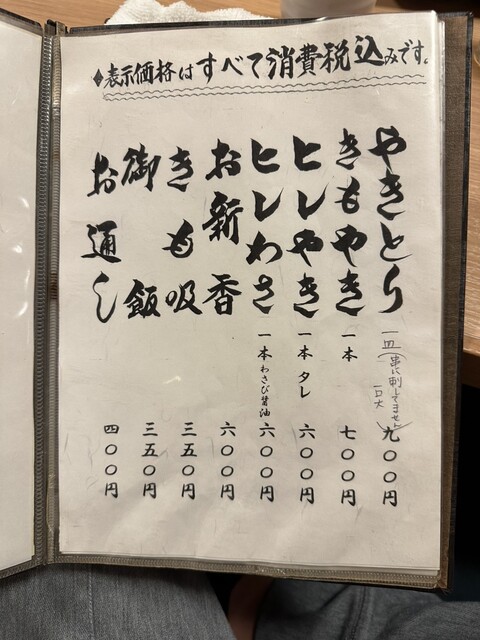 ♦表示価格はすべて消費税込みです。
やきとり 一皿(串に刺してません) 一口大 九〇〇円
きもやき 一本 七〇〇円
ヒレやき 一本 タレ 六〇〇円
ヒレわさ 一本 わさび醤油 六〇〇円
お新香 六〇〇円
きも吸 三五〇円
御飯 三五〇円
お通し 四〇〇円